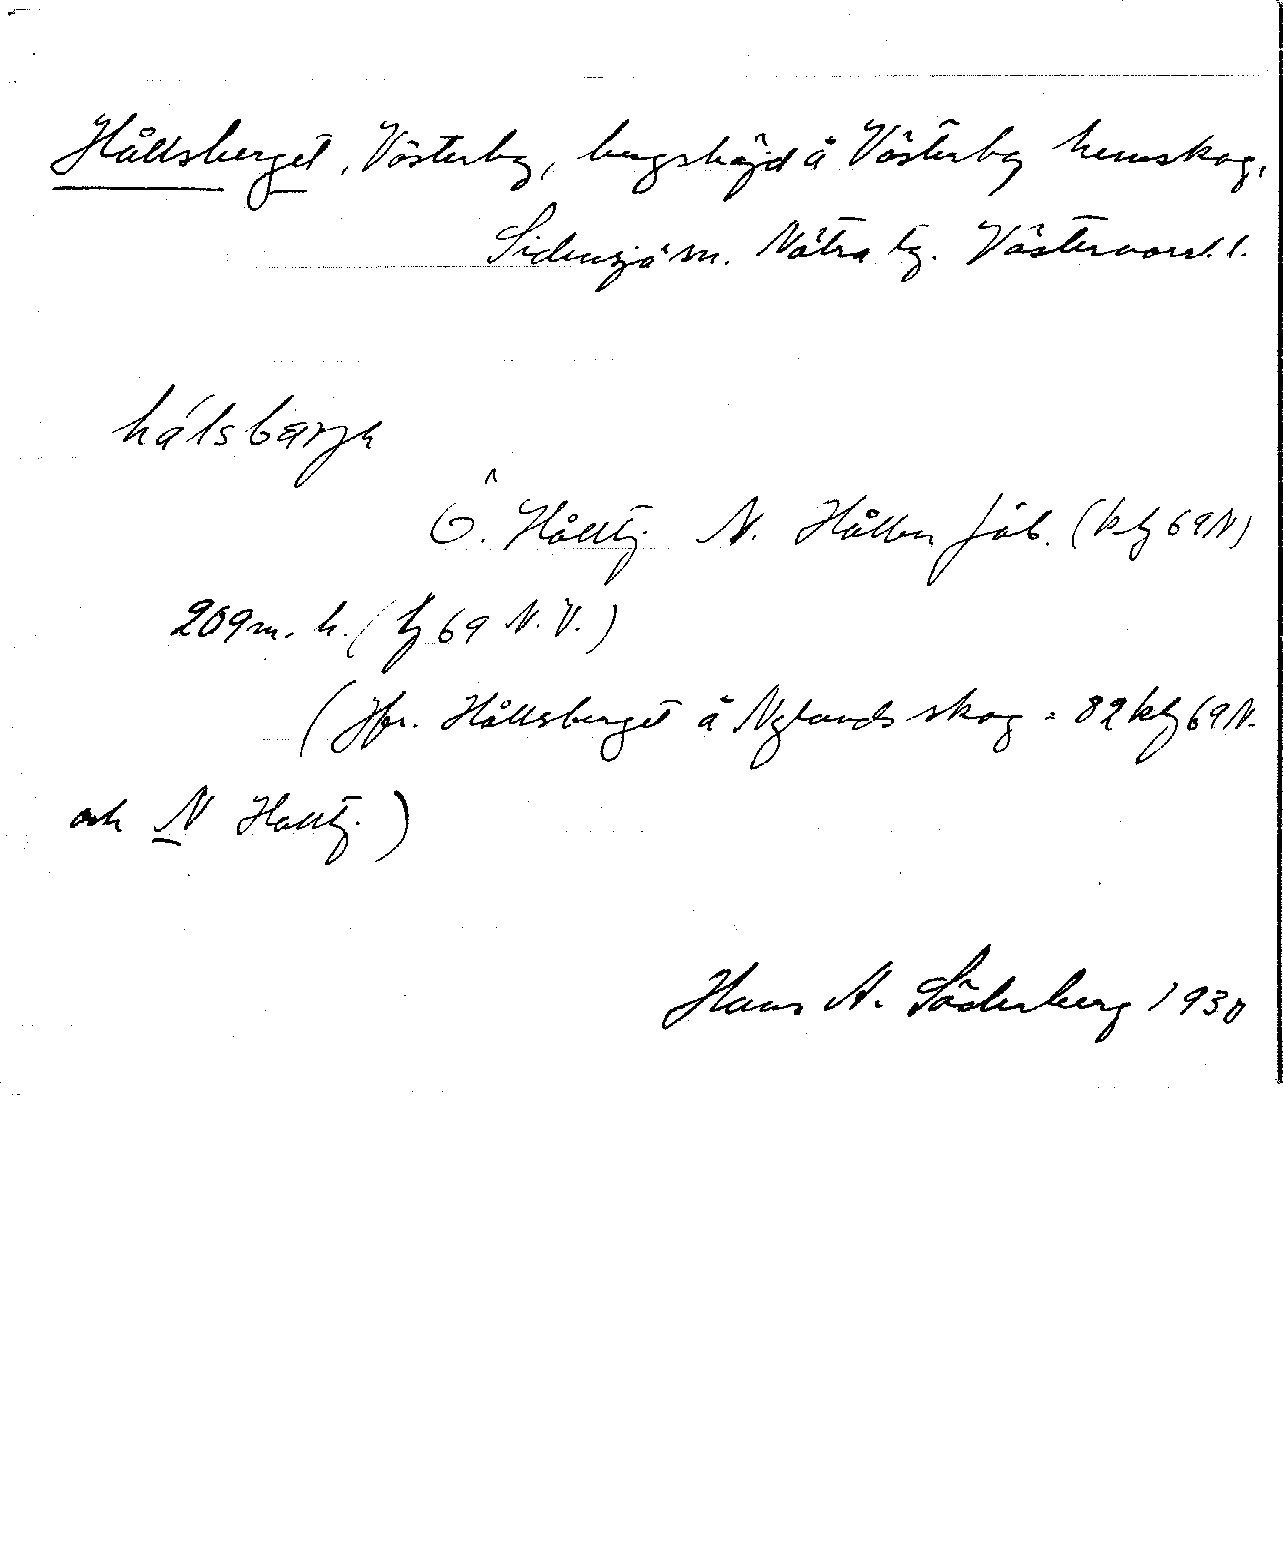 Hållsberget, Västerby, bergshöjd å Västerby hemskog,
Sidensjö sn. Nätra tg. Västernorrl. l.
hálsbærjh
Ö. Hålltj. N. Hållen fäb. (kbl 69 N)
209 m. h. (bl 69 N. V.)
(Jfr. Hållsberget å Nylands skog = 82 kbl 69 N.
och N Hålltj.)
Hans A. Söderberg 1930